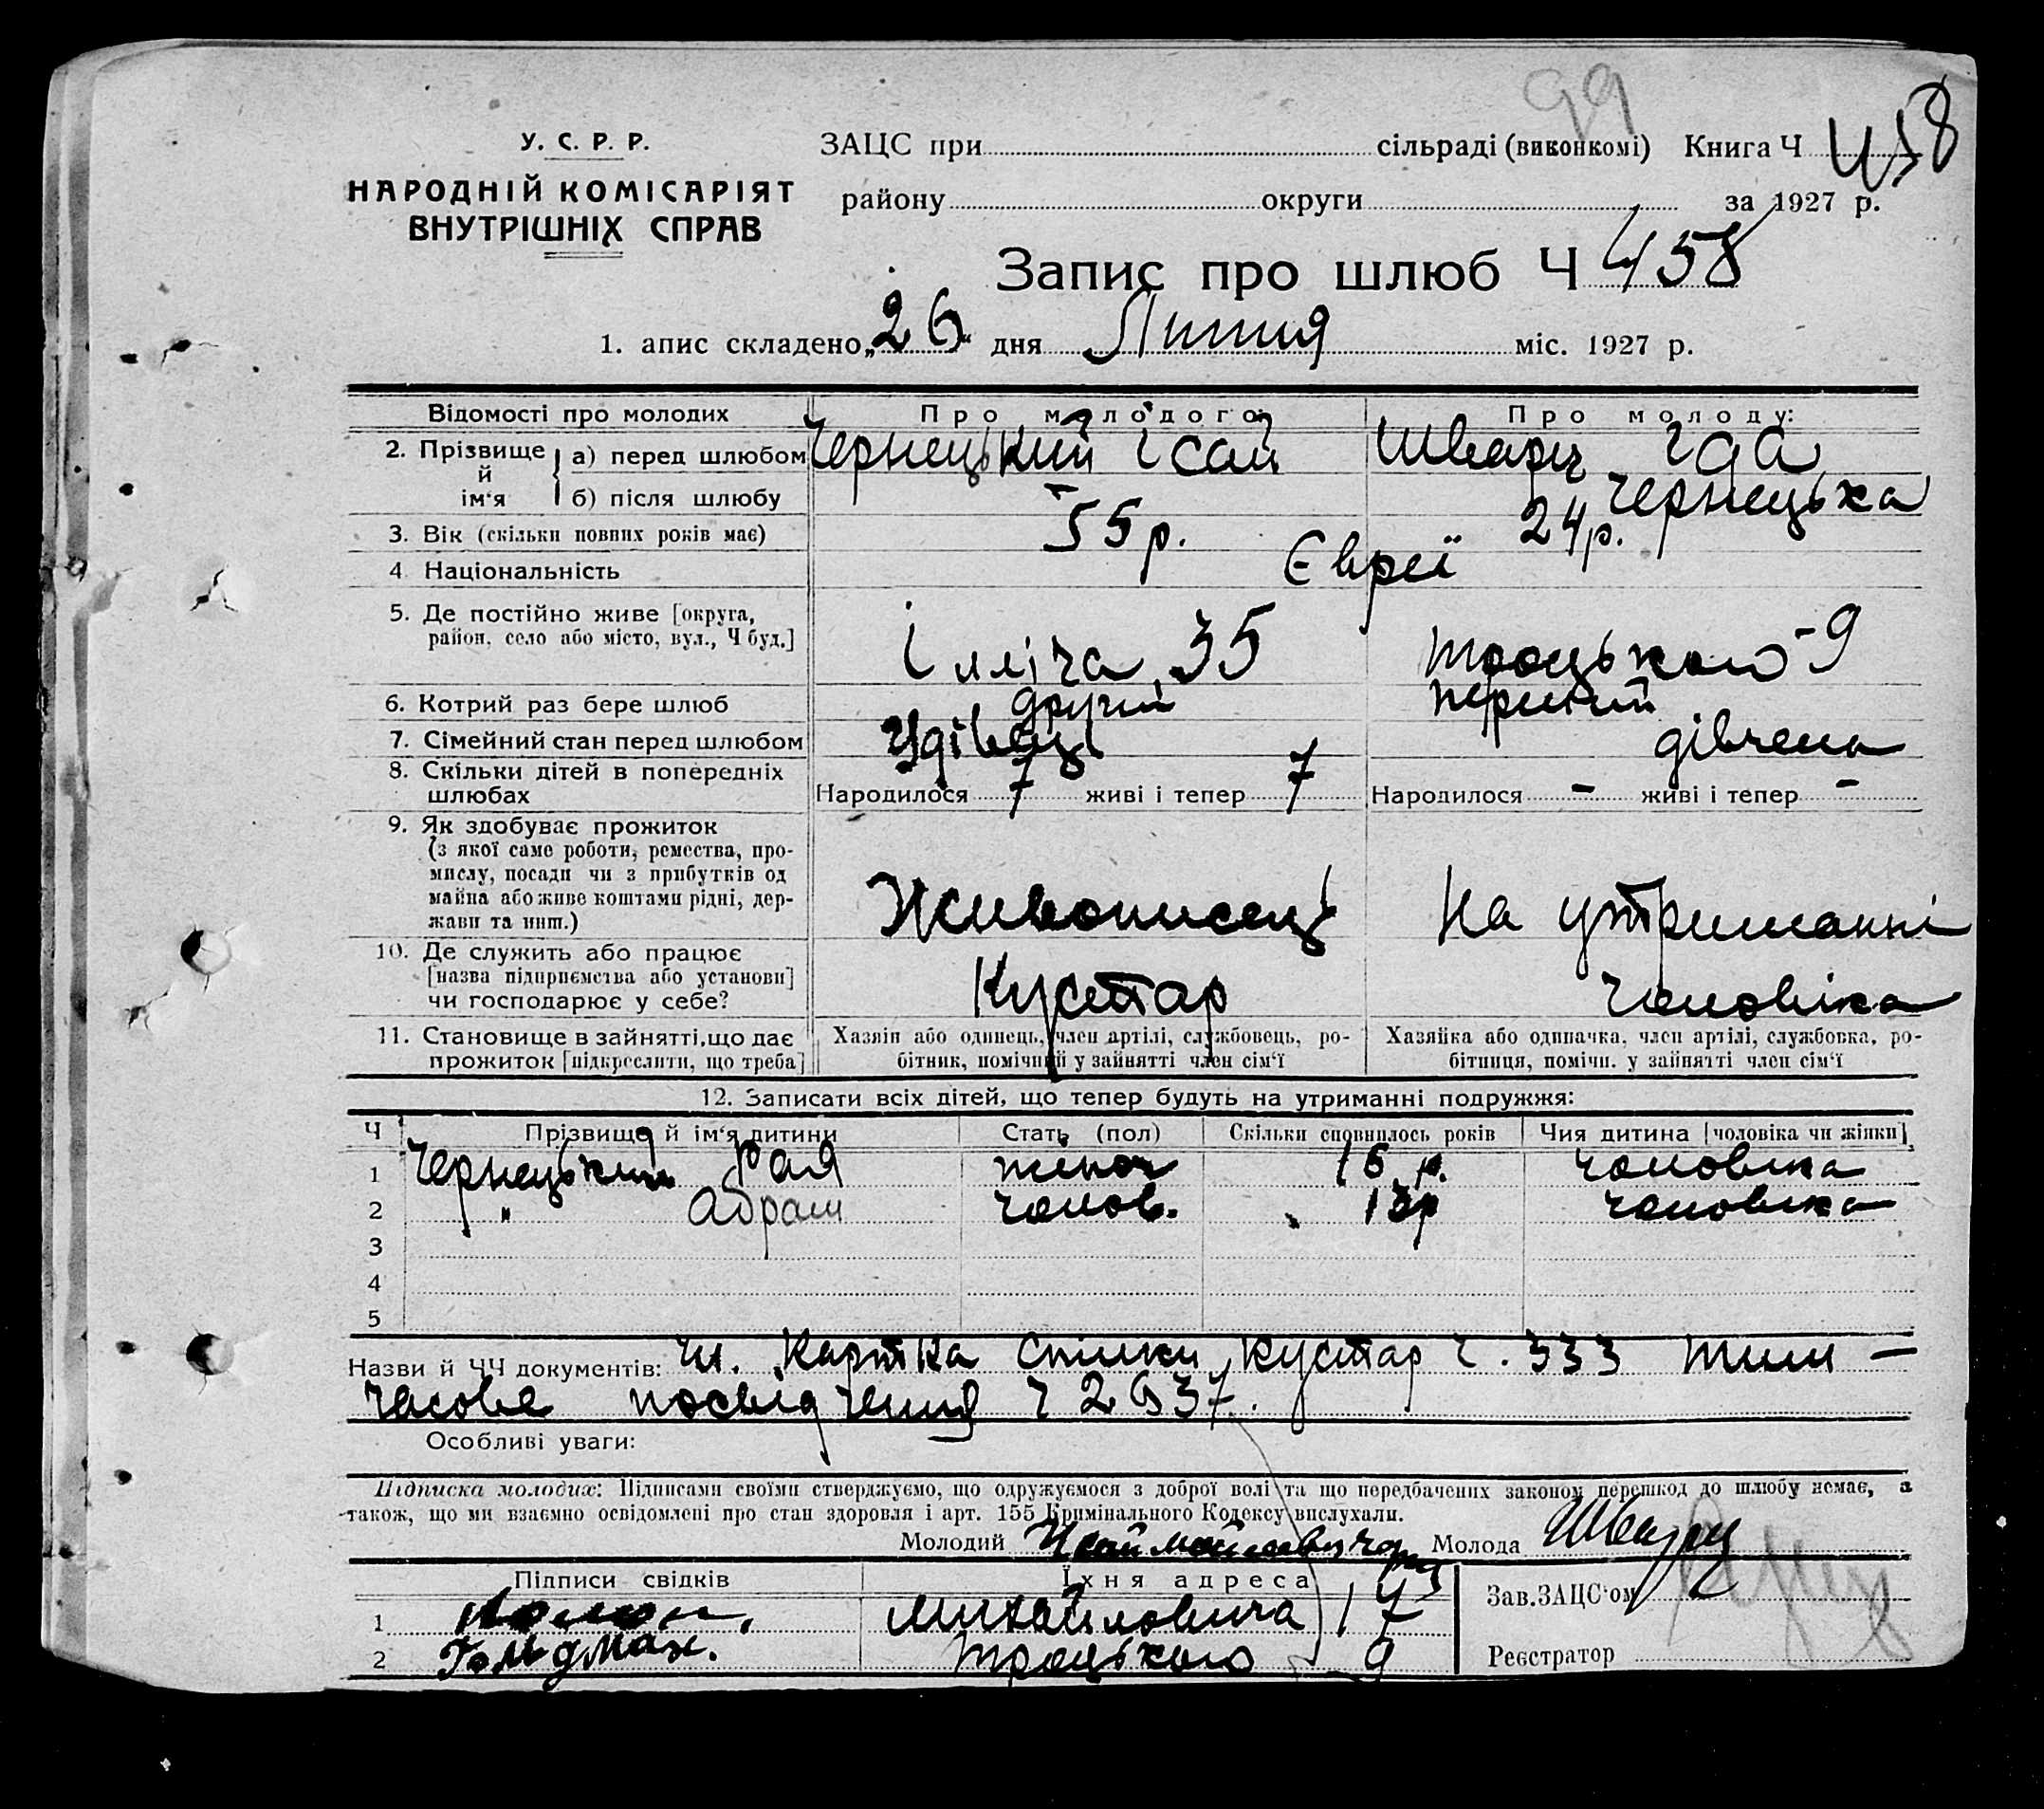 99
У. С. Р. Р.
НАРОДНІЙ КОМІСАРІЯТ
ВНУТРІШНІХ СПРАВ
ЗАЦС при сільраді (виконкомі) Книга Ч 458
району округи за 1927 р.
Запис про шлюб Ч 458
1. апис складено „26“ дня Липня міс. 1927 р.
Відомості про молодих Про молодого: Про молоду:
2. Прізвище й ім‘я а) перед шлюбом Чернецький Ісай Шварц Іда
б) після шлюбу Чернецька
3. Вік (скільки повних років має) 55 р. 24 р.
4 Національність Євреї
5. Де постійно живе [округа,
район, село або місто, вул., Ч буд.] Ілліча 35 Троцького - 9
6. Котрий раз бере шлюб другий перший
7. Сімейний стан перед шлюбом Удівець дівчена
8. Скільки дітей в попередніх
шлюбах Народилося 7 живі і тепер 7 Народилося - живі і тепер -
9. Як здобуває прожиток
(з якої саме роботи, ремества, про-
мислу, посади чи з прибутків од
майна або живе коштами рідні, дер-
жави та инш.) Живописець На утриманні
10. Де служить або працює
[назва підприємства або установи]
чи господарює у себе? Кустар чоловіка
11. Становище в зайнятті, що дає
прожиток [підкреслити, що треба]
Хазяїн або одинець, член артілі, службовець, ро-
бітник, помічний у зайнятті член сім‘ї
Хазяйка або одиначка, член артілі, службовка, ро-
бітниця, помічн. у зайнятті член сім‘ї
12. Записати всіх дітей, що тепер будуть на утриманні подружжя:
Ч Прізвище й ім‘я дитини Стать (пол) Скільки сповнилось років Чия дитина [чоловіка чи жінки]
1 Чернецький Рая жіноч 15 р. чоловіка
2 " Абрам чолов. 13р чоловіка
3
4
5
Назви й ЧЧ документів: Чл. Картка Спілки Кустар Ч. 333 Тим-
часове посвідчення Ч 2937.
Особливі уваги:
Підписка молодих: Підписами своїми стверджуємо, що одружуємося з доброї волі та що передбачених законом перешкод до шлюбу немає, а
також, що ми взаємно освідомлені про стан здоровля і арт. 155 Кримінального Кодексу вислухали.
Молодий Молода Шварц
Підписи свідків Їхня адреса Зав. ЗАЦС‘ом
1 Михайловича 17
2 Гольдман. Троцького 9 Реєстратор